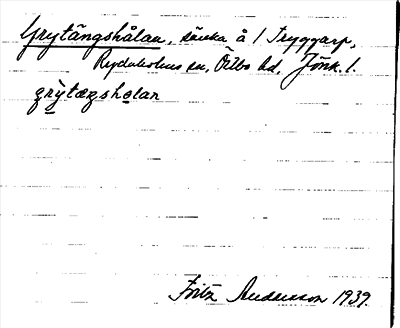 Grytängshålan, sänka å 1 Tryggarp,
Rydaholms sn, Östbo hd, Jönk. l.
grỳtæŋshɷlan
Fritz Andersson 1939.